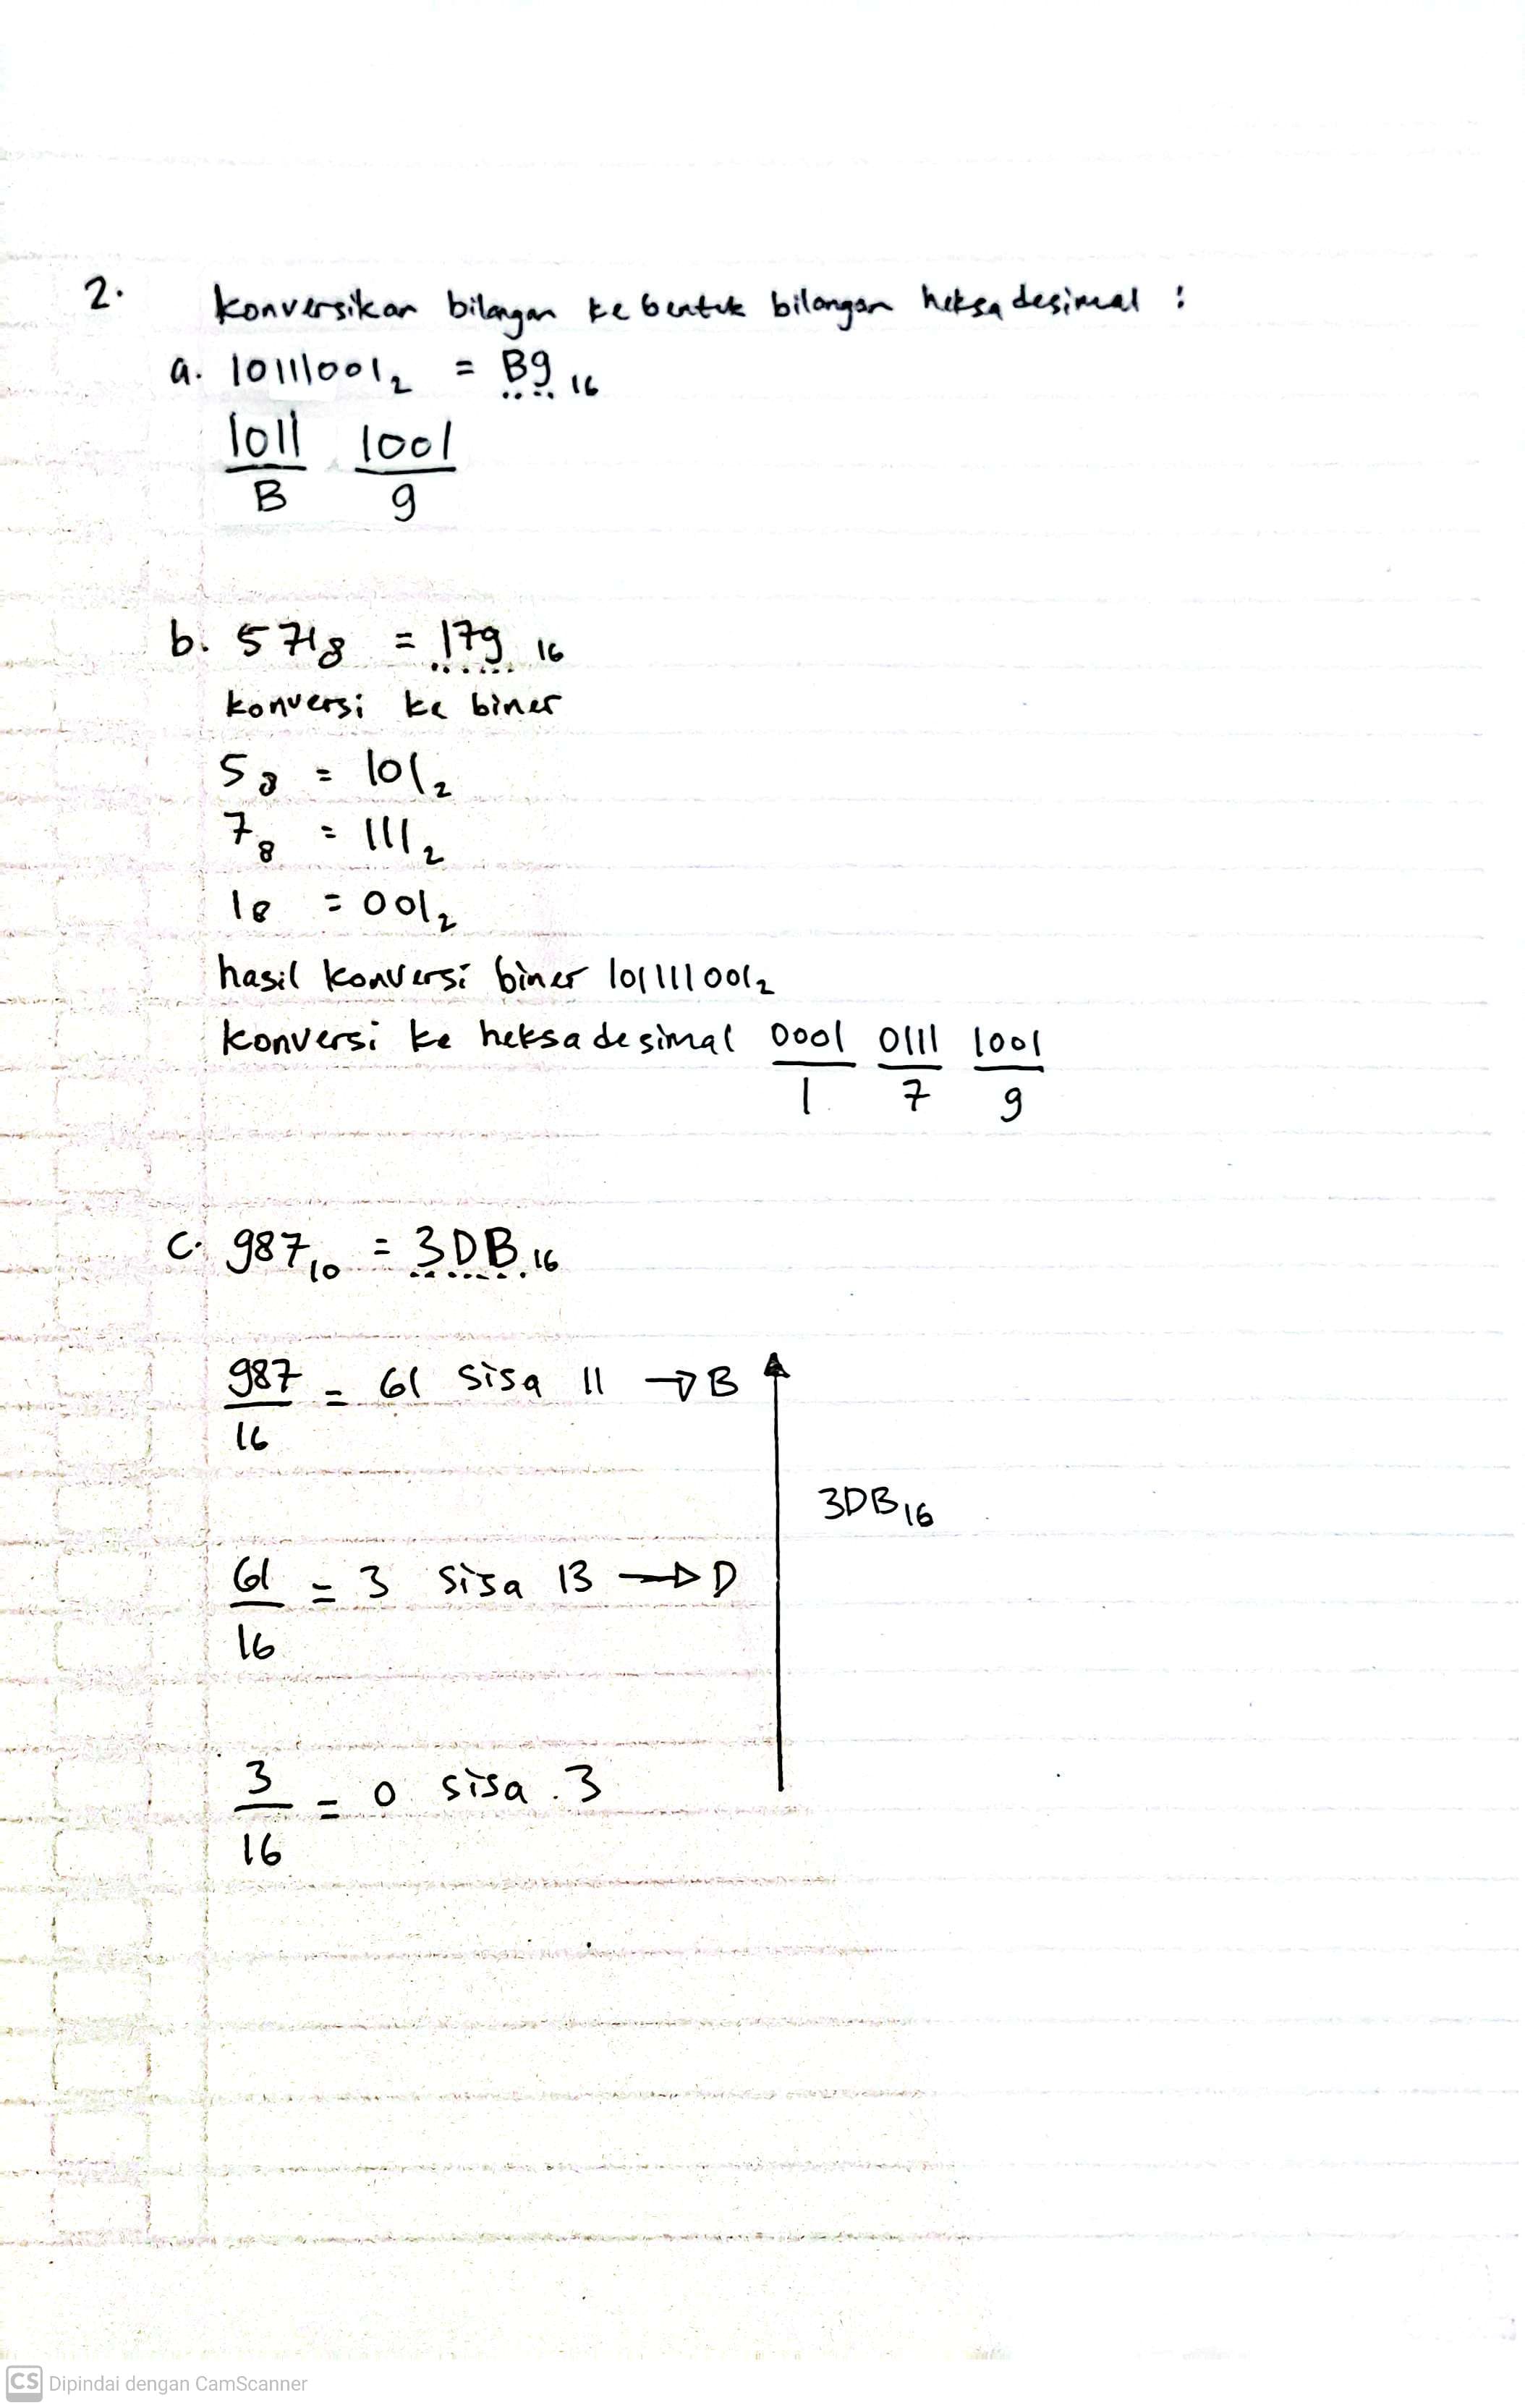 2. konversikan bilangan ke bentuk bilangan heksadesimal :
a. 10111001₂ = B9 ₁₆
1011 1001
B 9
b. 571₈ = 179 ₁₆
konversi ke biner
5₈ = 101₂
7₈ = 111₂
1₈ = 001₂
hasil konversi biner 101111001₂
konversi ke heksadesimal 0001 0111 1001
1 7 9
c. 987₁₀ = 3DB ₁₆
987/16 = 61 sisa 11 → B
3DB₁₆
61/16 = 3 sisa 13 → D
3/16 = 0 sisa 3
CS Dipindai dengan CamScanner